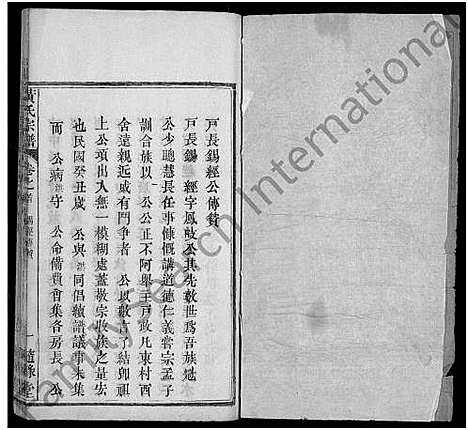 戶長錫經公傳贊
戶長錫 經字鳳公其先數世爲吾族
公少聰慧長任事慷慨講道德仁義嘗宗孟子
訓合族以 公公正不阿舉主戶政凡東村西
舍遠親近戚有鬥爭者 公以數言了結卽祖
上公項出入無一模糊處蓋敬宗收族之是宏
也民國癸丑歲 公與 同倡續譜議事未集
而 公病 守 公命備費會集各房長 公
黃氏宗譜 卷之首
一
堂
FamilySearch International